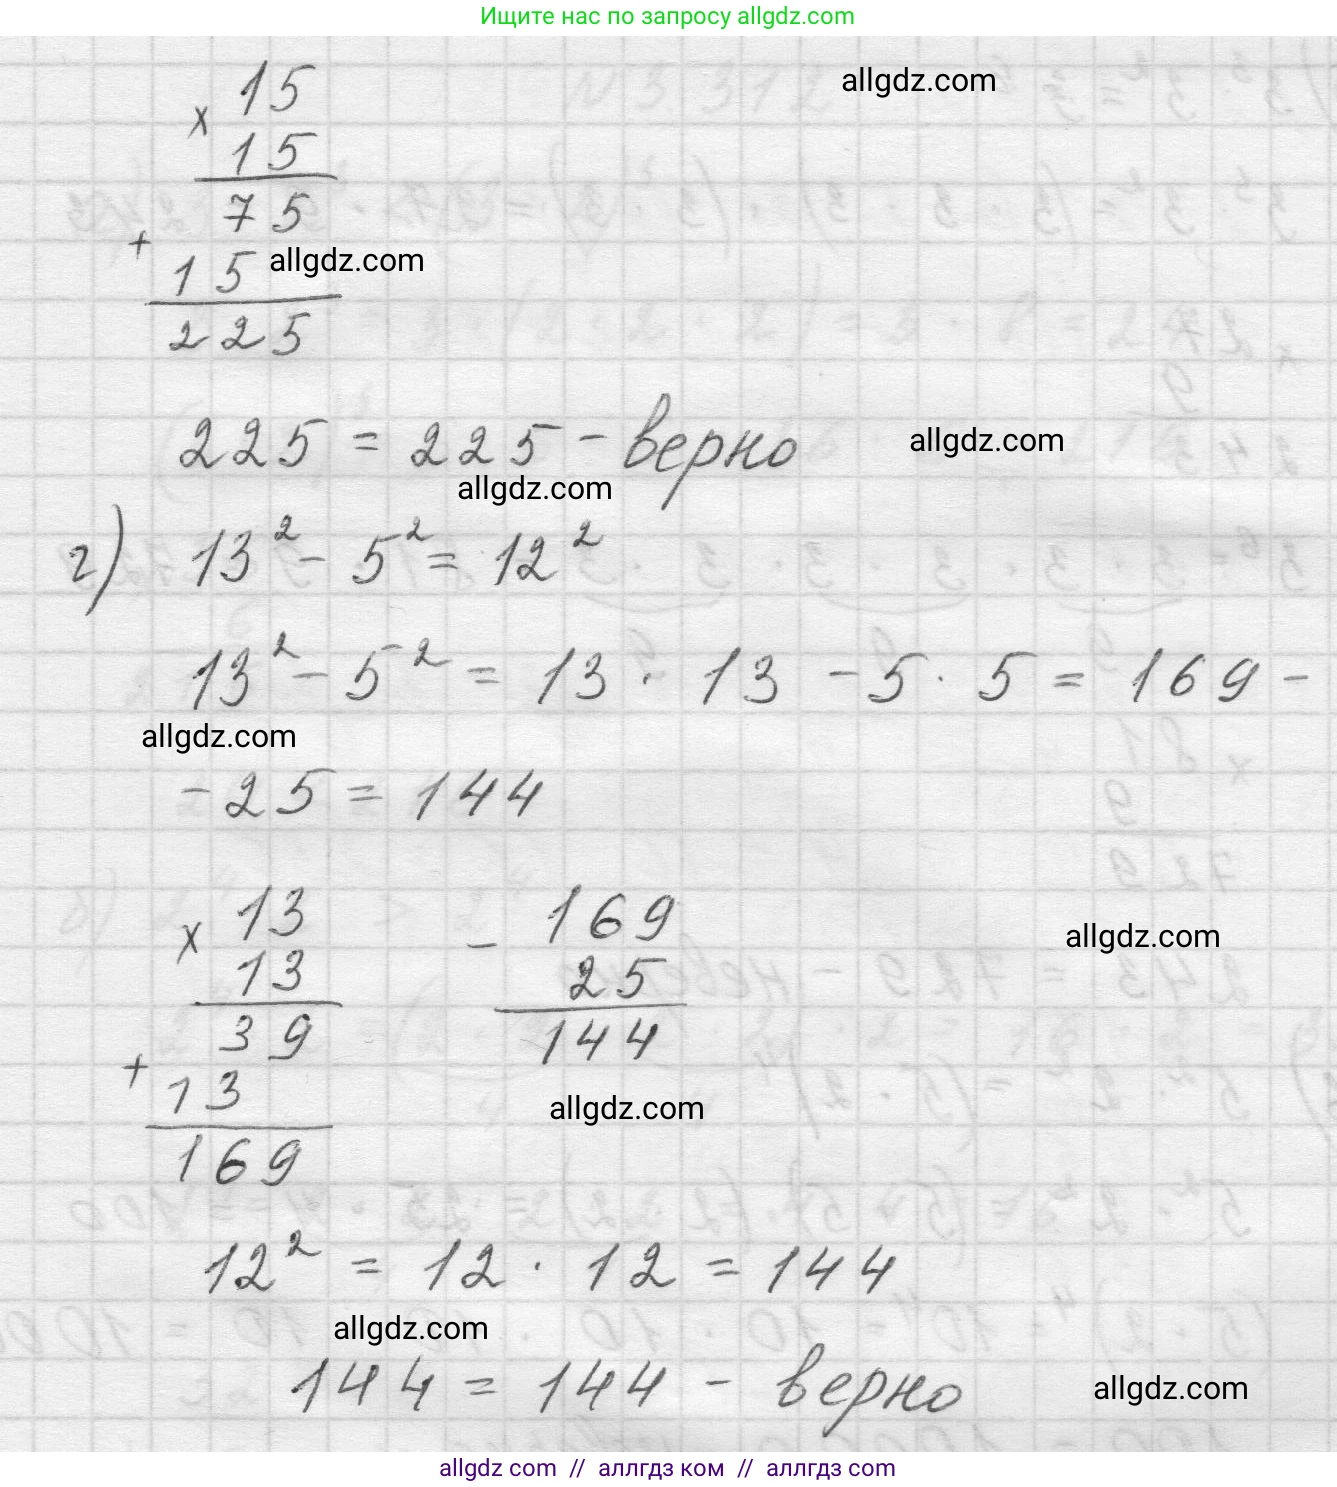 Ищите нас по запросу allgdz.com
15 allgdz.com
×
15
75
+
15 allgdz.com
225
225 = 225 - верно allgdz.com
allgdz.com
г) 13² - 5² = 12²
13² - 5² = 13 · 13 - 5 · 5 = 169 -
allgdz.com
- 25 = 144
× 13 - 169
13 25 allgdz.com
39 144
+
13
allgdz.com
169
12² = 12 · 12 = 144
allgdz.com
144 = 144 - верно allgdz.com
allgdz com // аллгдз ком // аллгдз com